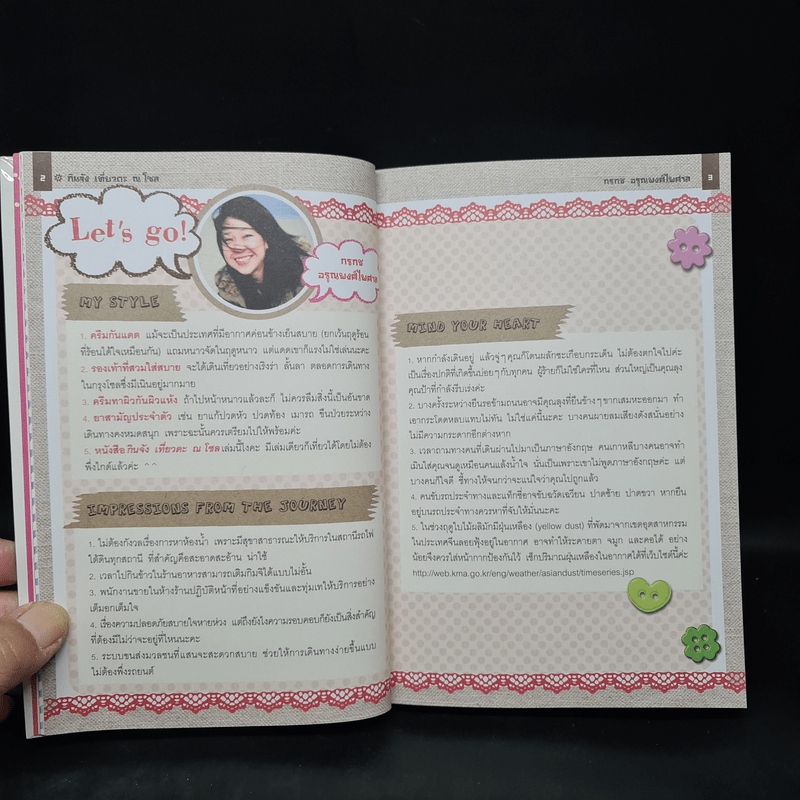 2 ❊ กินจัง เที่ยวตะ ณ โซล
Let's go!
กรกช
อรุณพงศ์ไพศาล
MY STYLE
1. ครีมกันแดด แม้จะเป็นประเทศที่มีอากาศค่อนข้างเย็นสบาย (ยกเว้นฤดูร้อน
ที่ร้อนได้ใจเหมือนกัน) แถมหนาวจัดในฤดูหนาว แต่แดดเขาก็แรงไม่ใช่เล่นนะคะ
2. รองเท้าที่สวมใส่สบาย จะได้เดินเที่ยวอย่างเริงร่า ลั้นลา ตลอดการเดินทาง
ในกรุงโซลซึ่งมีเนินอยู่มากมาย
3. ครีมทาผิวกันผิวแห้ง ถ้าไปหน้าหนาวแล้วละก็ ไม่ควรลืมสิ่งนี้เป็นอันขาด
4. ยาสามัญประจำตัว เช่น ยาแก้ปวดหัว ปวดท้อง เมารถ ขืนป่วยระหว่าง
เดินทางคงหมดสนุก เพราะฉะนั้นควรเตรียมไปให้พร้อมค่ะ
5. หนังสือ กินจัง เที่ยวตะ ณ โซล เล่มนี้ไงคะ มีเล่มเดียวก็เที่ยวได้โดยไม่ต้อง
พึ่งไกด์แล้วค่ะ ^^
IMPRESSIONS FROM THE JOURNEY
1. ไม่ต้องกังวลเรื่องการหาห้องน้ำ เพราะมีสุขาสาธารณะให้บริการในสถานีรถไฟ
ใต้ดินทุกสถานี ที่สำคัญคือสะอาดสะอ้าน น่าใช้
2. เวลาไปกินข้าวในร้านอาหารสามารถเติมกิมจิได้แบบไม่อั้น
3. พนักงานขายในห้างร้านปฏิบัติหน้าที่อย่างแข็งขันและทุ่มเทให้บริการอย่าง
เต็มอกเต็มใจ
4. เรื่องความปลอดภัยสบายใจหายห่วง แต่ถึงยังไงความรอบคอบก็ยังเป็นสิ่งสำคัญ
ที่ต้องมีไม่ว่าจะอยู่ที่ไหนนะคะ
5. ระบบขนส่งมวลชนที่แสนจะสะดวกสบาย ช่วยให้การเดินทางง่ายขึ้นแบบ
ไม่ต้องพึ่งรถยนต์
กรกช อรุณพงศ์ไพศาล 3
MIND YOUR HEART
1. หากกำลังเดินอยู่ แล้วจู่ๆ คุณก็โดนผลักซะเกือบกระเด็น ไม่ต้องตกใจไปค่ะ
เป็นเรื่องปกติที่เกิดขึ้นบ่อยๆ กับทุกคน ผู้ร้ายก็ไม่ใช่ใครที่ไหน ส่วนใหญ่เป็นคุณลุง
คุณป้าที่กำลังรีบเร่งค่ะ
2. บางครั้งระหว่างยืนรอข้ามถนนอาจมีคุณลุงที่ยืนข้างๆ ขากเสมหะออกมา ทำ
เอากระโดดหลบแทบไม่ทัน ไม่ใช่แค่นี้นะคะ บางคนผายลมเสียงดังสนั่นอย่าง
ไม่มีความกระดากอีกต่างหาก
3. เวลาถามทางคนที่เดินผ่านไปมาเป็นภาษาอังกฤษ คนเกาหลีบางคนอาจทำ
เมินใส่คุณจนดูเหมือนคนแล้งน้ำใจ นั่นเป็นเพราะเขาไม่พูดภาษาอังกฤษค่ะ แต่
บางคนก็ใจดี ชี้ทางให้จนกว่าจะแน่ใจว่าคุณไปถูกแล้ว
4. คนขับรถประจำทางและแท็กซี่อาจขับฉวัดเฉวียน ปาดซ้าย ปาดขวา หากยืน
อยู่บนรถประจำทางควรหาที่จับให้มั่นนะคะ
5. ในช่วงฤดูใบไม้ผลิมักมีฝุ่นเหลือง (yellow dust) ที่พัดมาจากเขตอุตสาหกรรม
ในประเทศจีนลอยฟุ้งอยู่ในอากาศ อาจทำให้ระคายตา จมูก และคอได้ อย่าง
น้อยจึงควรใส่หน้ากากป้องกันไว้ เช็กปริมาณฝุ่นเหลืองในอากาศได้ที่เว็บไซต์นี้ค่ะ
http://web.kma.go.kr/eng/weather/asiandust/timeseries.jsp